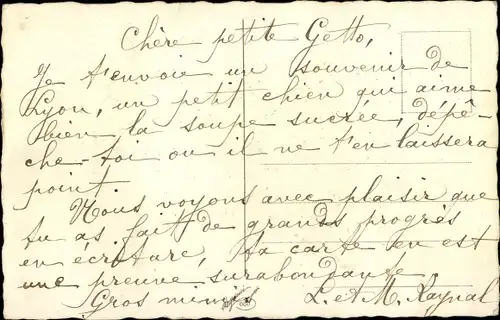 Chère petite Getto,
Je t'envoie un souvenir de
Lyon, un petit chien qui aime
bien la soupe sucrée, dépê-
che-toi ou il ne t'en laissera
point.
Nous voyons avec plaisir que
tu as fait de grands progrès
en écriture, ta carte en est
une preuve surabondante.
Gros mimis L. et M. Raynal